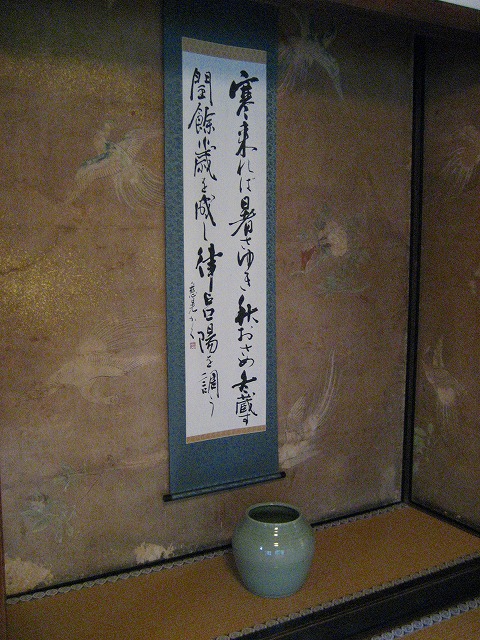 寒来れば暑さゆき秋おさめ冬蔵す
閏餘歳を成し律呂陽を調う